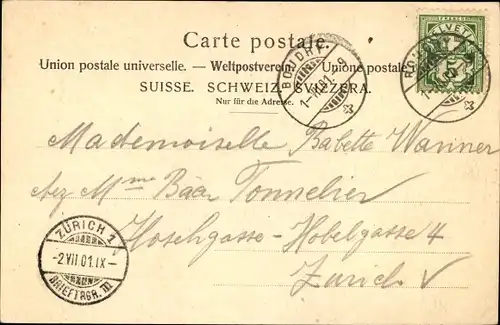 Carte postale.
Union postale universelle. — Weltpostverein. — Unione postale
SUISSE. SCHWEIZ. SVIZZERA.
Nur für die Adresse.
FRANCO
HELVETIA
5
BOUDRY
1-VII.01.-9
BOUDRY
Mademoiselle Babette Wanner
chez Mme Bäar Tonnelier
Hoschgasse-Hobelgasse 4
Zürich V
ZÜRICH 1
-2.VII.01.IX-
BRIEFTRGR. III